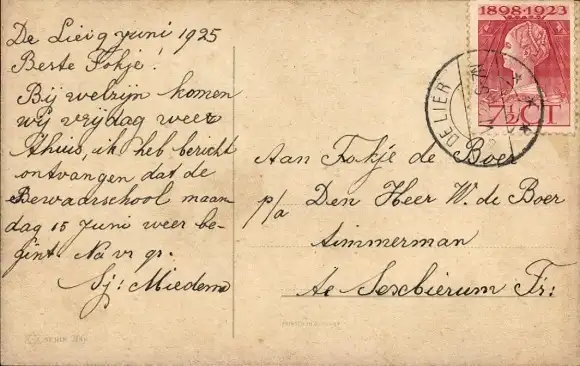 De Lier 9 juni 1925
Beste Fokje!
Bij welzijn komen
wij vrijdag weer
thuis, ik heb bericht
ontvangen dat de
Bewaarschool maan
dag 15 Juni weer be-
gint. Na vr gr.
Sj: Miedema
1898-1923
7½ CT
DE LIER
Aan Fokje de Boer
p/a Den Heer W. de Boer
timmerman
te Sexbierum Fr: